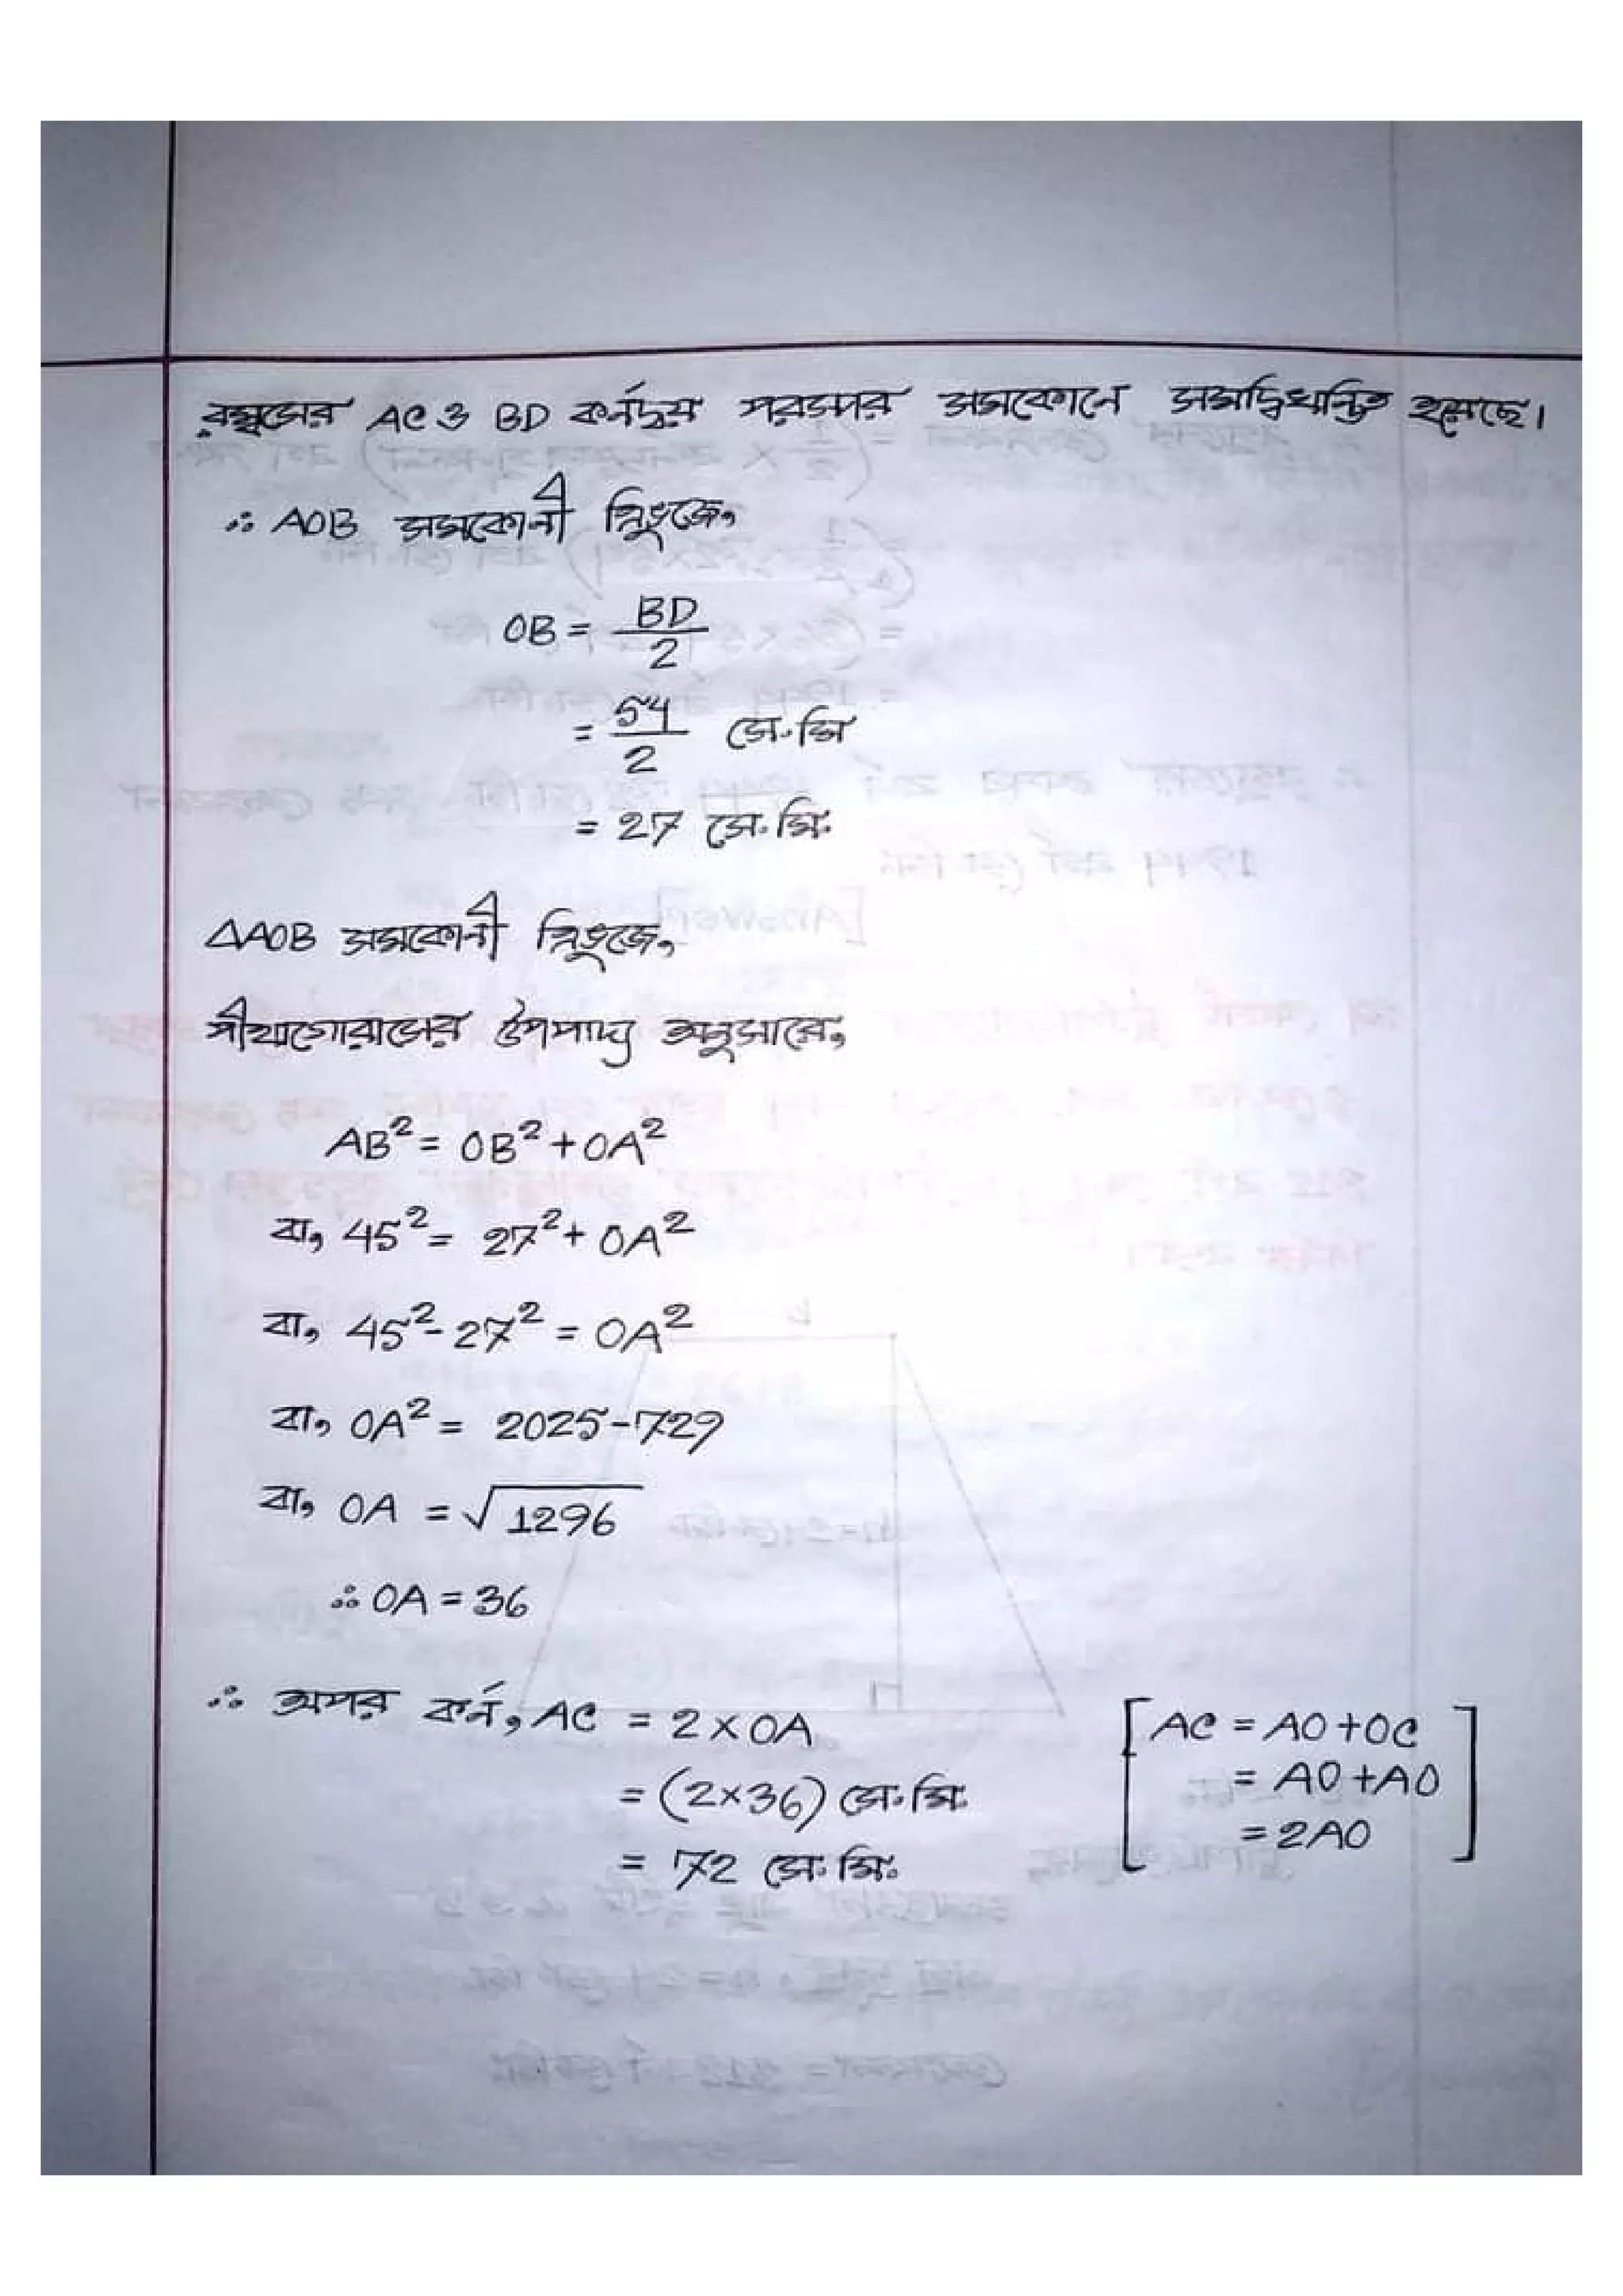 রম্বসের AC ও BD কর্নদ্বয় পরস্পর সমকোনে সমদ্বিখন্ডিত হয়েছে।
∴ AOB সমকোনী ত্রিভুজে,
OB = BD/2
= 54/2 সে.মি
= 27 সে.মি.
△AOB সমকোনী ত্রিভুজে,
পীথাগোরাসের উপপাদ্য অনুসারে,
AB² = OB² + OA²
বা, 45² = 27² + OA²
বা, 45² - 27² = OA²
বা, OA² = 2025 - 729
বা, OA = √1296
∴ OA = 36
∴ অপর কর্ন, AC = 2 × OA [AC = AO + OC
= (2×36) সে.মি. = AO + AO
= 72 সে.মি. = 2AO]